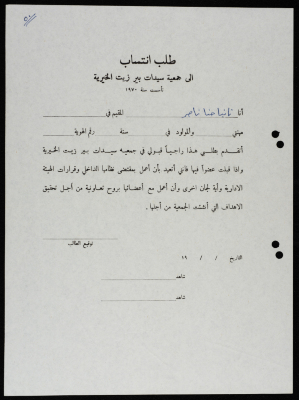 طلب انتساب
الى جمعية سيدات بير زيت الخيرية
تأسست سنة ١٩٧٠
أنا تانيا حنا ناصر المقيم في
مهنتي والمولود في سنة رقم الهوية
أتقدم بطلبي هذا راجياً قبولي في جمعية سيدات بير زيت الخيرية
واذا قبلت عضواً فيها فانني أتعهد بأن أعمل بمقتضى نظامها الداخلي وقرارات الهيئة
الادارية وأية لجان اخرى وأن أعمل مع أعضائها بروح تعاونية من أجل تحقيق
الاهداف التي أنشئت الجمعية من أجلها.
توقيع الطالب
التاريخ / / ١٩
شاهد
شاهد